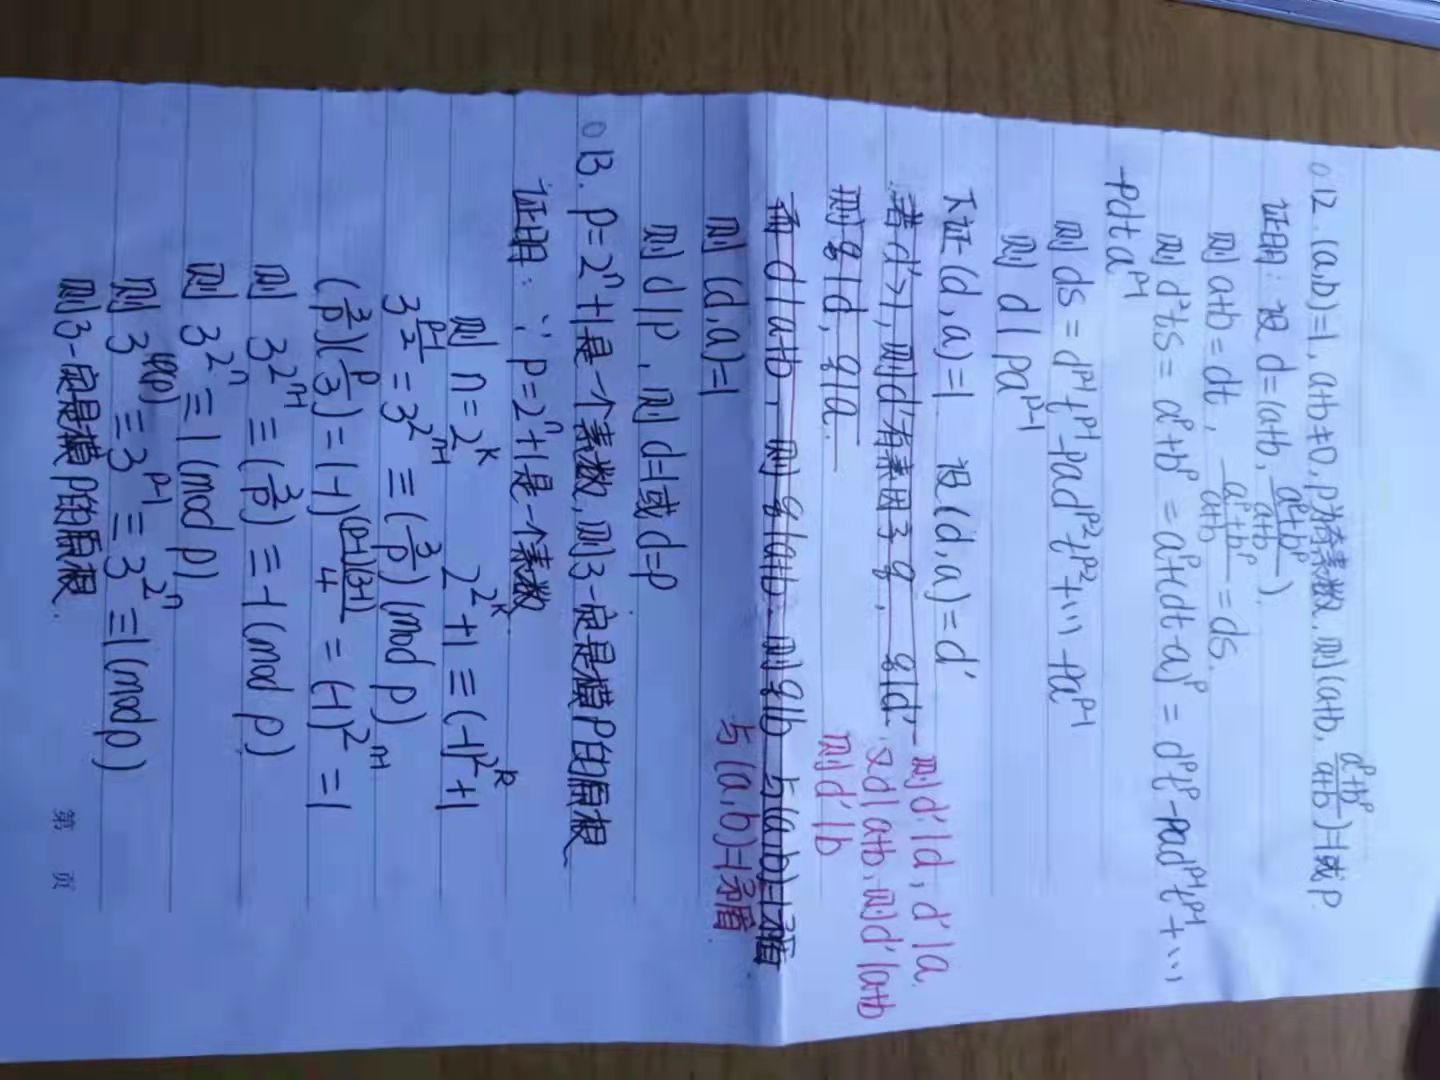 12. (a,b)=1, a+b≠0, p为奇素数, 则(a+b, (a^p+b^p)/(a+b))=1或p.
证明: 设 d=(a+b, (a^p+b^p)/(a+b)).
则 a+b=dt, (a^p+b^p)/(a+b)=ds.
则 d²ts=a^p+b^p=a^p+(dt-a)^p=d^pt^p-pad^{p-1}t^{p-1}+…
+pdta^{p-1}
则 ds=d^{p-1}t^{p-1}-pad^{p-2}t^{p-2}+… +pa^{p-1}
则 d|pa^{p-1}
下证(d,a)=1 设(d,a)=d'
若d'>1, 则d'有素因子q, q|d'
则d'|d, d'|a
则q|d, q|a.
又d|a+b, 则d'|a+b
则d'|b
而d|a+b, 则q|a+b. 则q|b 与(a,b)=1矛盾
与(a,b)=1矛盾.
则(d,a)=1
则d|p, 则d=1或d=p
13. p=2^n+1是一个素数, 则3一定是模p的原根
证明: ∵p=2^n+1是一个素数
则 n=2^k 2^{2^k}+1≡(-1)^{2^k}+1
3^{(p-1)/2}=3^{2^{n-1}}≡(3/p)(mod p)
(3/p)(p/3)=(-1)^{(p-1)(3-1)/4}=(-1)^{2^{n-1}}=1
则 3^{2^{n-1}}≡(3/p)≡-1(mod p)
则 3^{2^n}≡1(mod p)
则 3^{φ(p)}≡3^{p-1}≡3^{2^n}≡1(mod p)
则3一定是模p的原根.
第 页